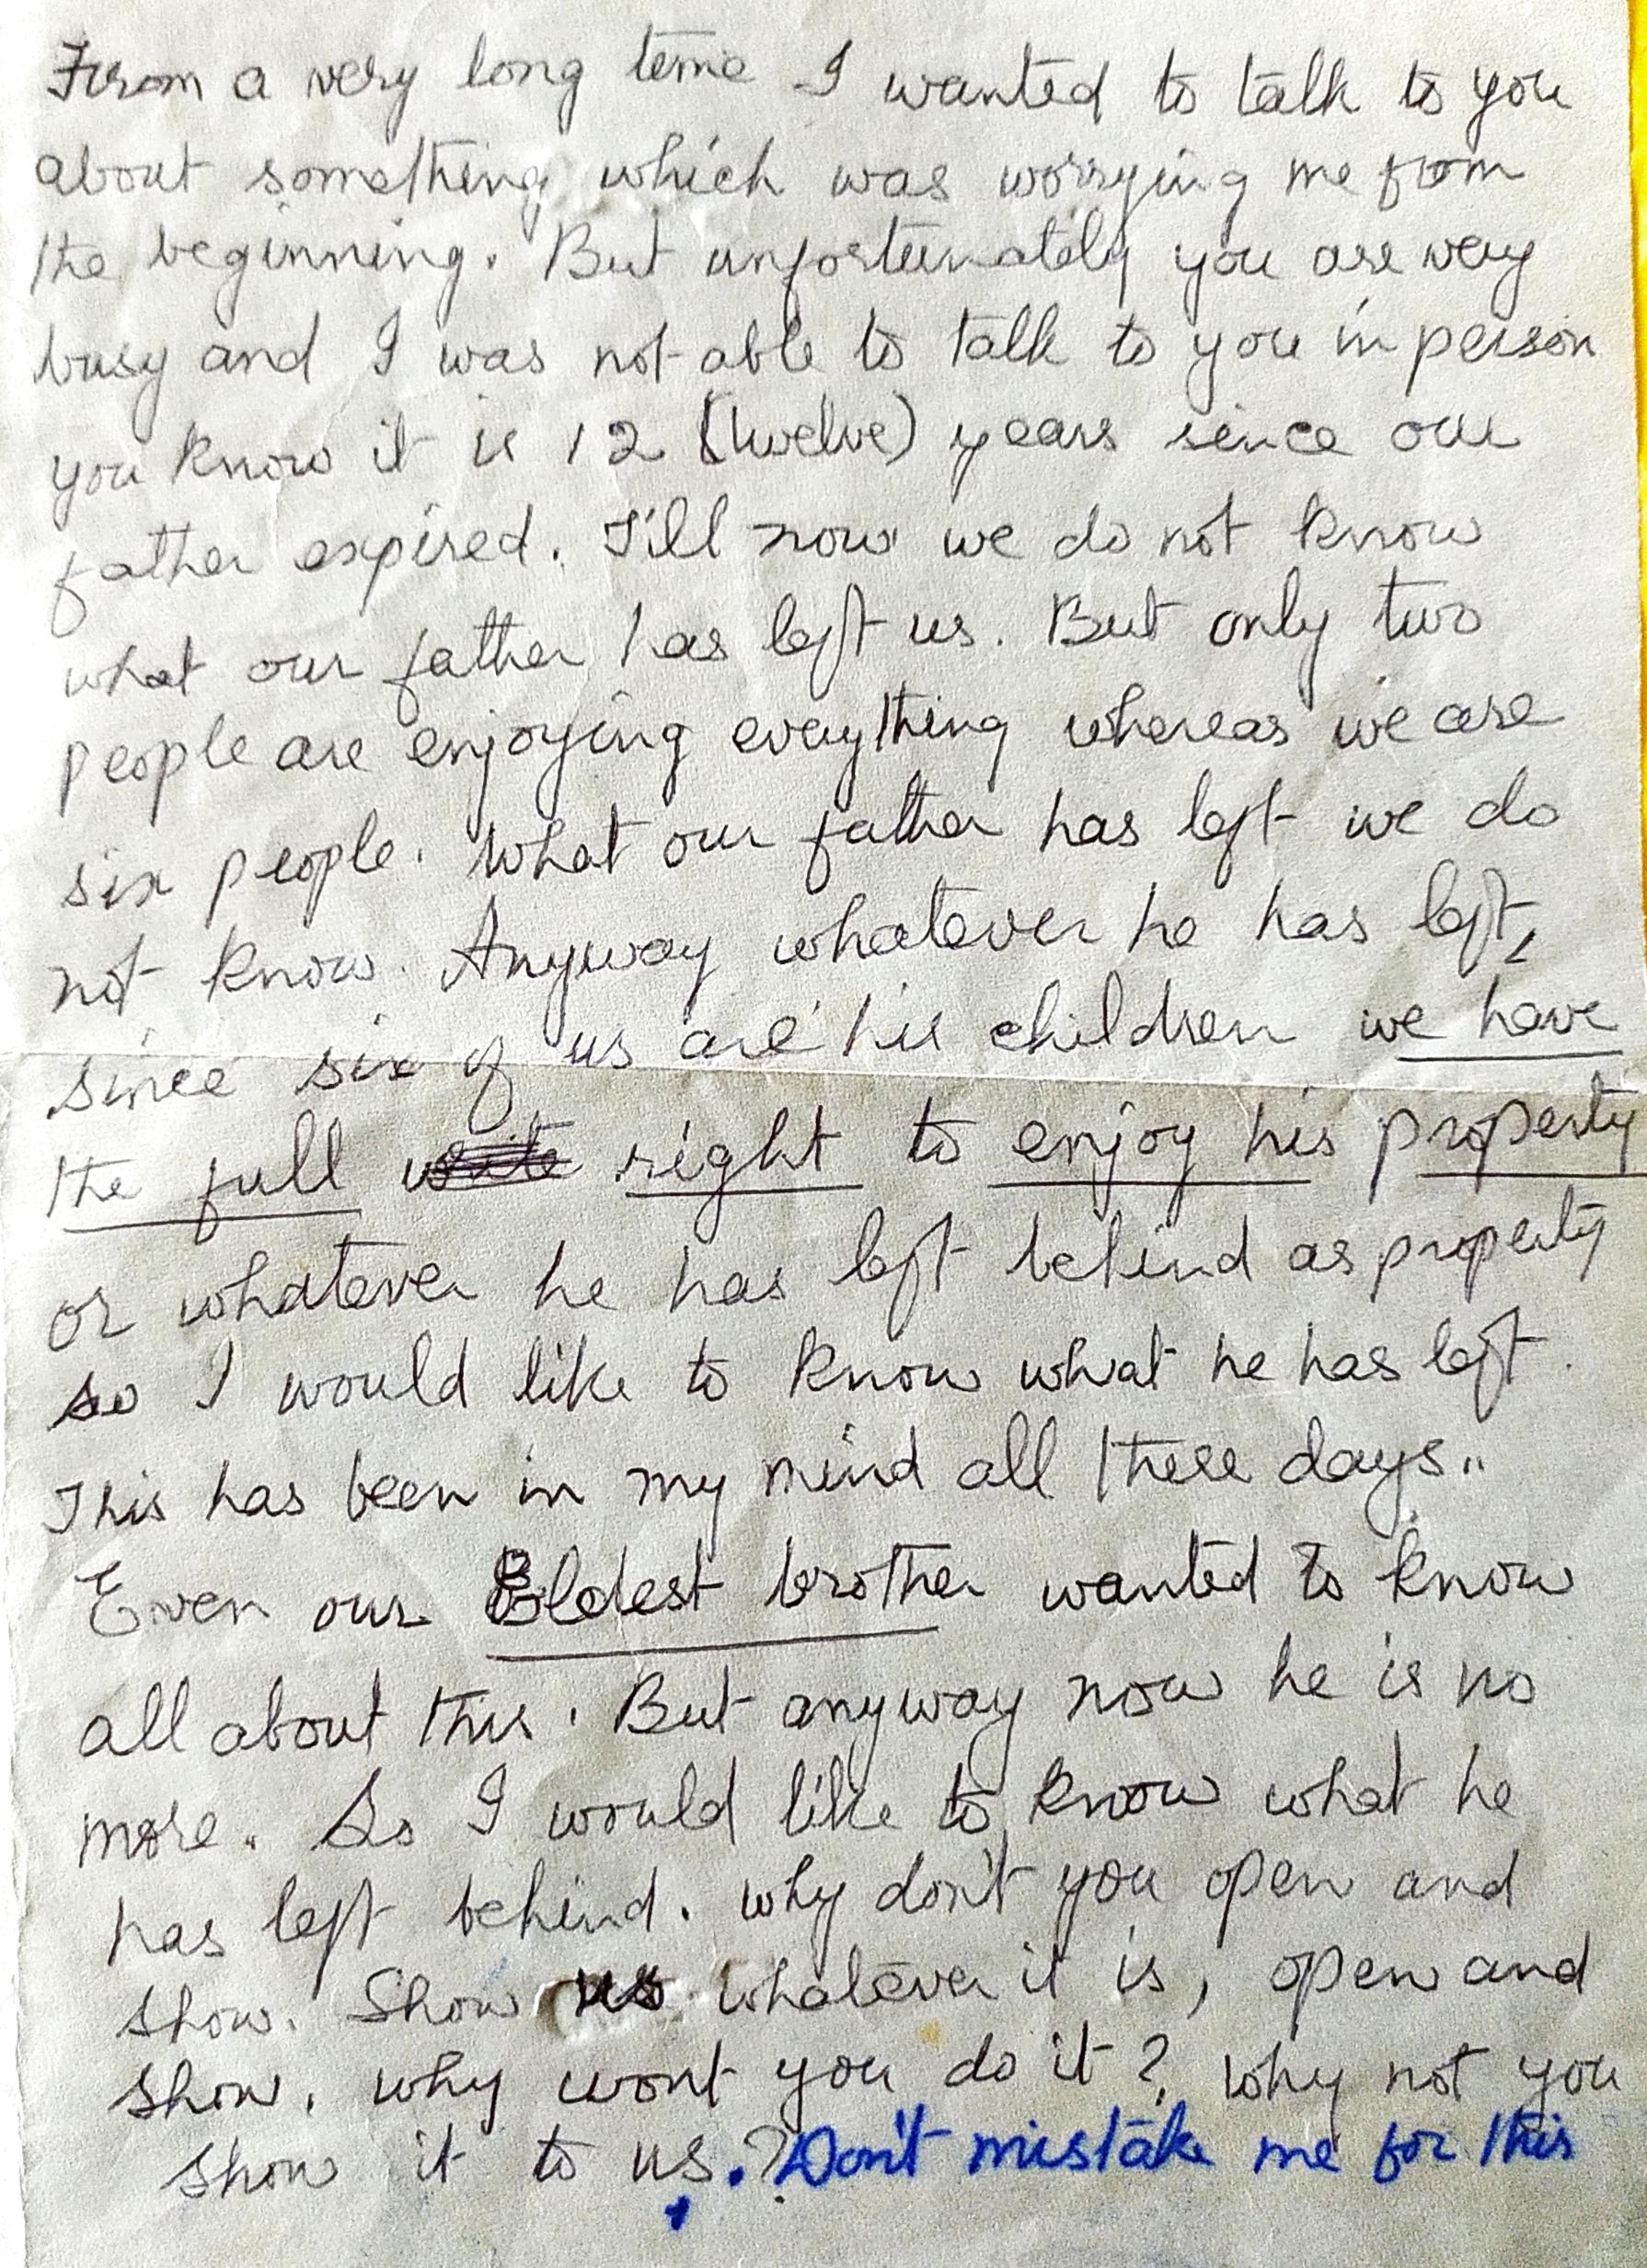 From a very long teme I wanted to talk to you
about something which was worrying me from
the beginning. But unfortunately you are very
busy and I was not able to talk to you in person
you know it is 12 (twelve) years since our
father expired. Till now we do not know
what our father has left us. But only two
people are enjoying everything whereas we are
six people. What our father has left we do
not know. Anyway whatever he has left,
since six of us are his children we have
the full write right to enjoy his property
or whatever he has left behind as property
so I would like to know what he has left.
This has been in my mind all these days..
Even our Eldest brother wanted to know
all about this. But anyway now he is no
more. So I would like to know what he
has left behind. why don't you open and
show. Show us whatever it is, open and
show. why wont you do it? Why not you
show it to us.? Don't mistake me for this